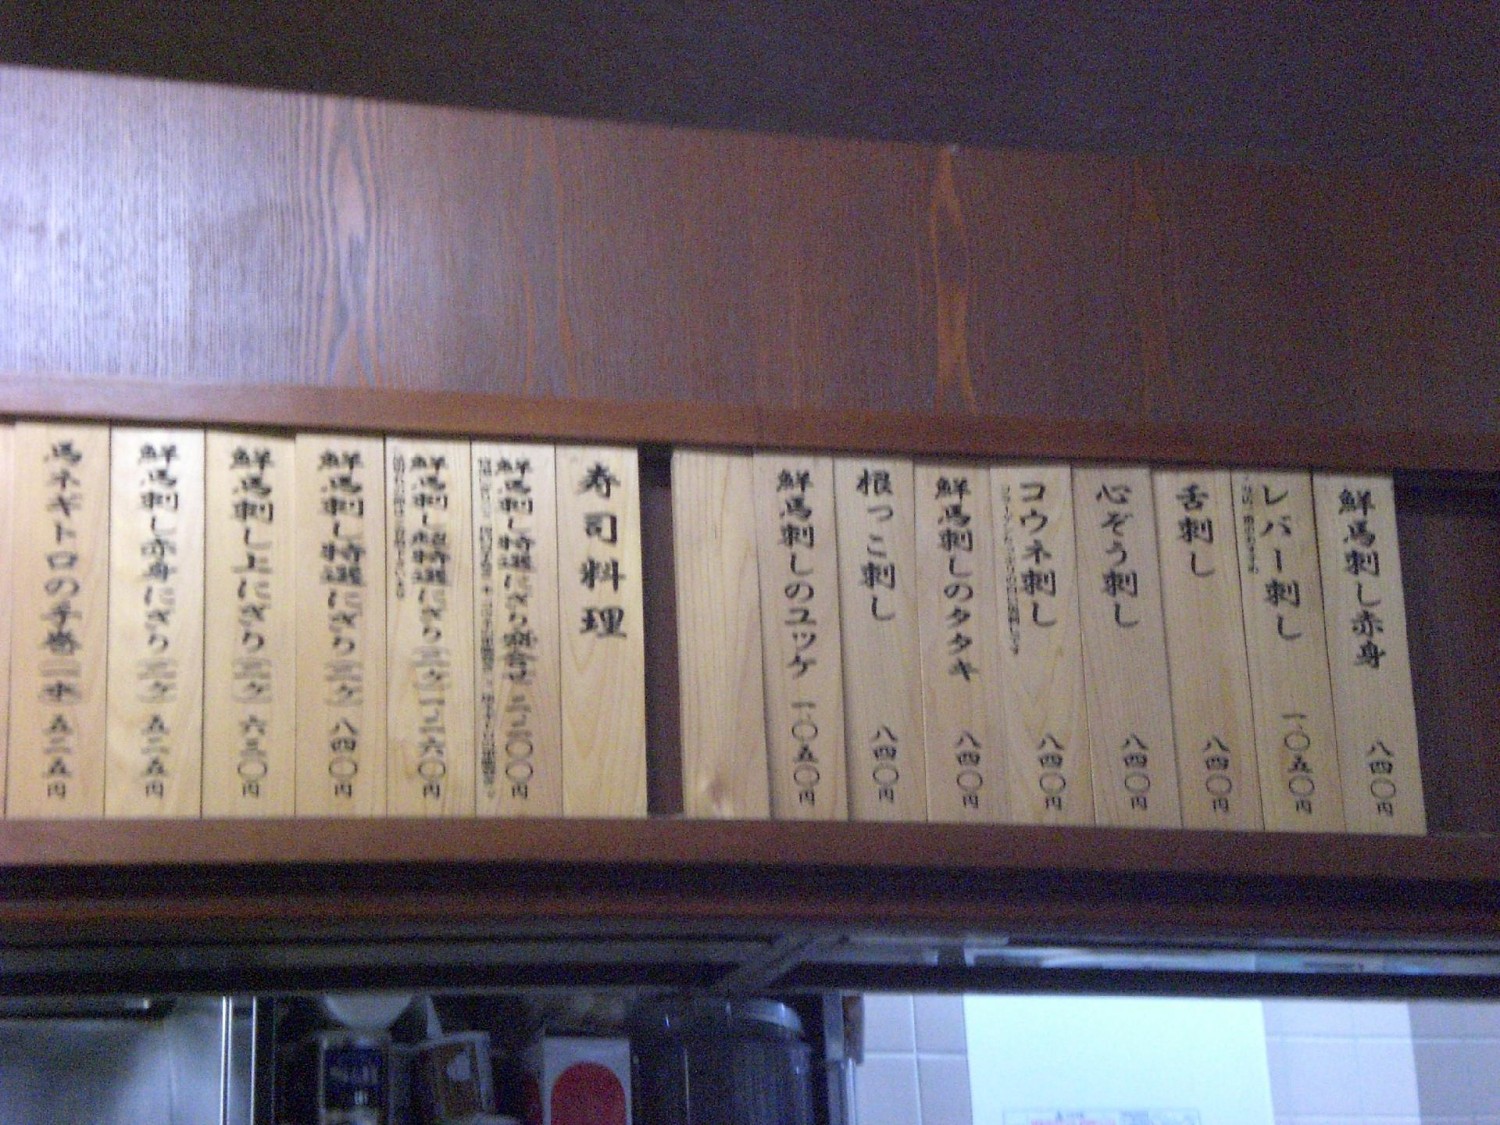 鮮馬刺し赤身 八四〇円
レバー刺し 一、〇五〇円
舌刺し 八四〇円
心ぞう刺し 八四〇円
コウネ刺し 八四〇円
鮮馬刺しのタタキ 八四〇円
根っこ刺し 八四〇円
鮮馬刺しのユッケ 一、〇五〇円
寿司料理
鮮馬刺し特選にぎり
鮮馬刺し超特選にぎり 一、二六〇円
鮮馬刺し特選にぎり 八四〇円
鮮馬刺し上にぎり 六三〇円
鮮馬刺し赤身にぎり 五二五円
馬ネギトロの手巻 五二五円